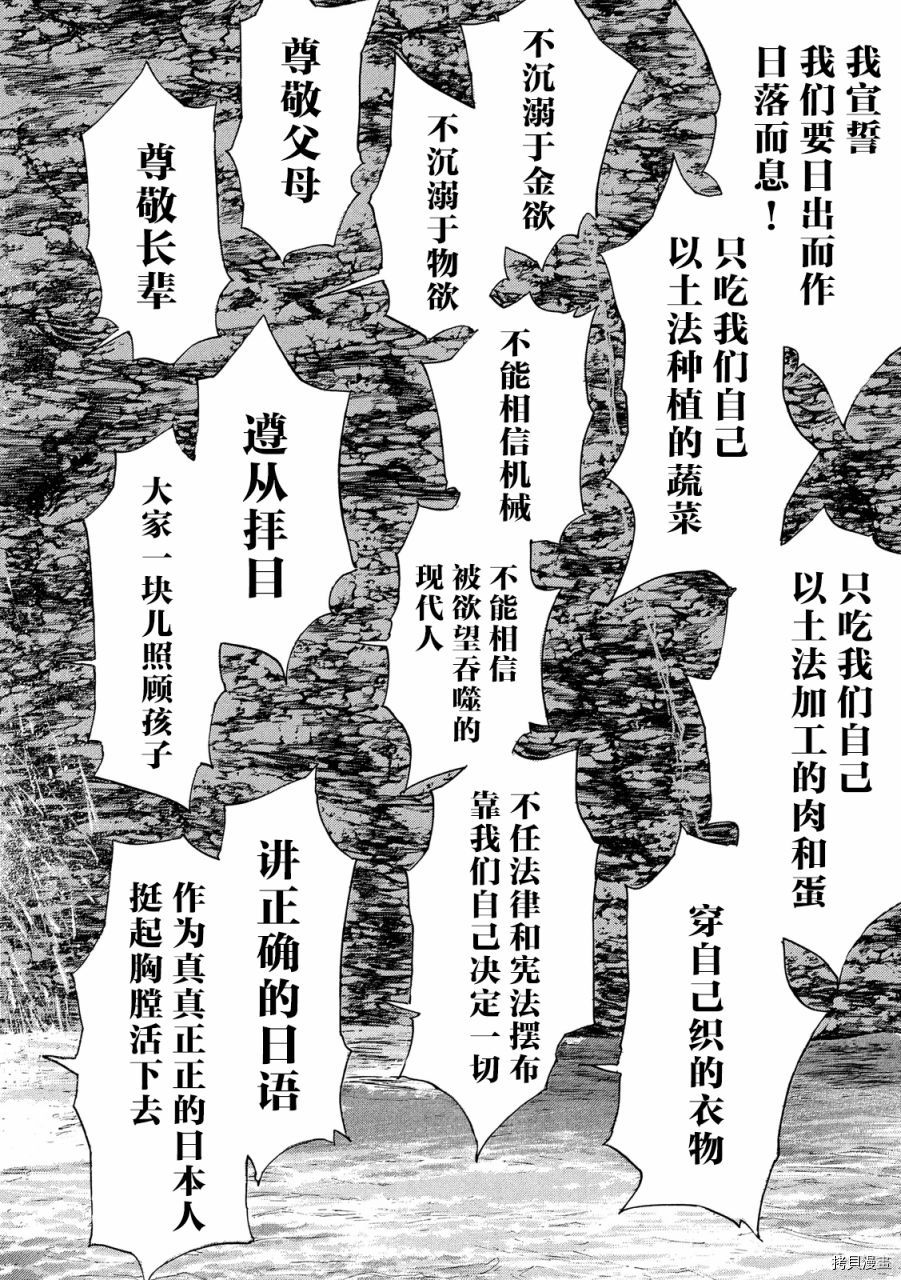 我宣誓
我们要日出而作
日落而息！
只吃我们自己
以土法种植的蔬菜
只吃我们自己
以土法加工的肉和蛋
穿自己织的衣物
不沉溺于金欲
不沉溺于物欲
不能相信机械
不能相信
被欲望吞噬的
现代人
不任法律和宪法摆布
靠我们自己决定一切
尊敬父母
尊敬长辈
遵从拝目
大家一块儿照顾孩子
讲正确的日语
作为真真正正的日本人
挺起胸膛活下去
拷貝漫畫